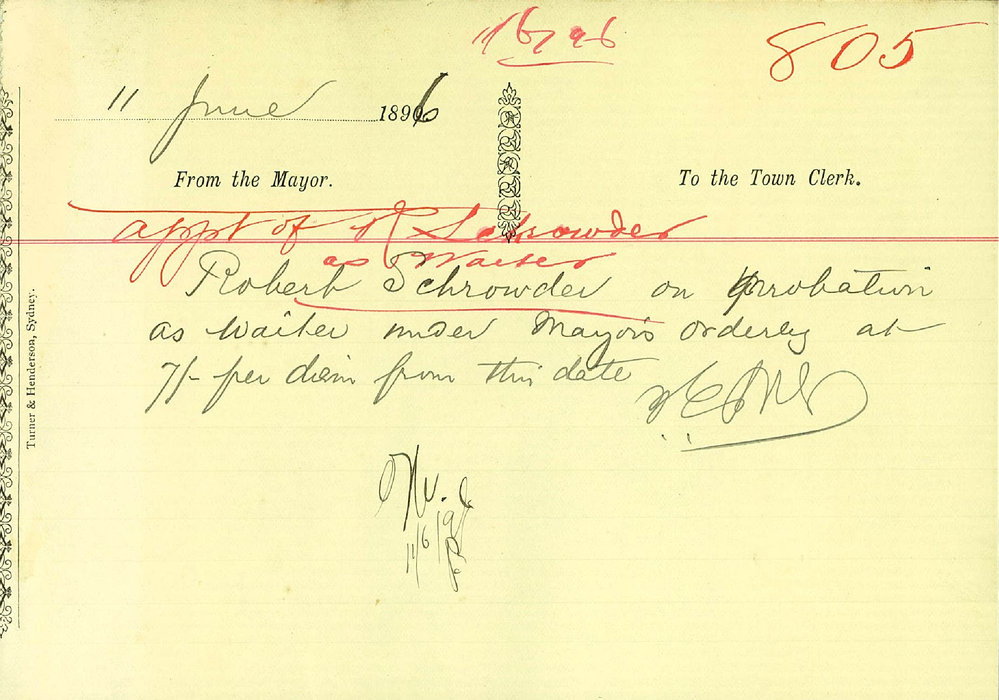 805
11 June 1896
From the Mayor.
To the Town Clerk.
appt of R Schrowder
as Waiter
Robert Schrowder on probation
as Waiter under Mayor's orderly at
7/- per diem from this date
11/6/96
Turner & Henderson, Sydney.